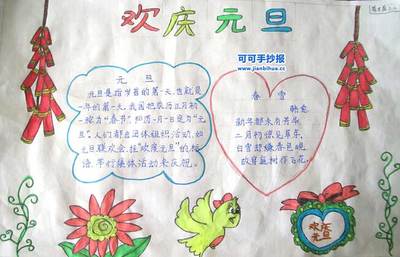 欢庆元旦
可可手抄报
www.jianbihua.cc
元 旦
元旦是指岁首的第一天也就是
一年的第一天。我国把农历正月初
一称为“春节”阳历一月一日定为“元
旦”。人们都自团体组织活动,如
元旦联欢会,挂“欢度元旦”的标
语,举行集体活动来庆祝。
春 雪
韩愈
新年都未有芳华
二月初惊见草芽
白雪却嫌春色晚
故穿庭树作飞花
欢庆
元旦